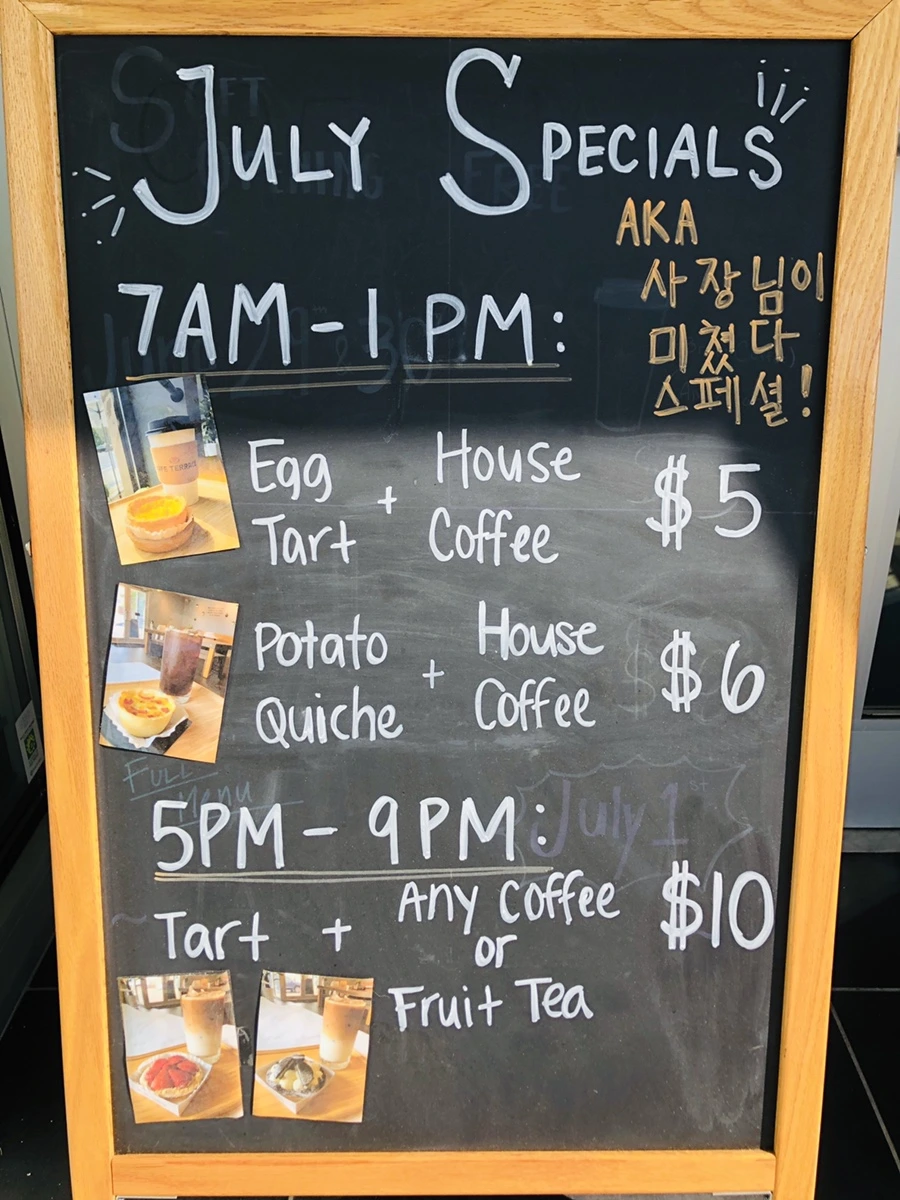 JULY SPECIALS
AKA
사장님이
미쳤다
스페셜!
7AM-1PM:
Egg Tart + House Coffee $5
Potato Quiche + House Coffee $6
Full Menu
July 1ST
5PM-9PM:
Tart + Any Coffee or Fruit Tea $10